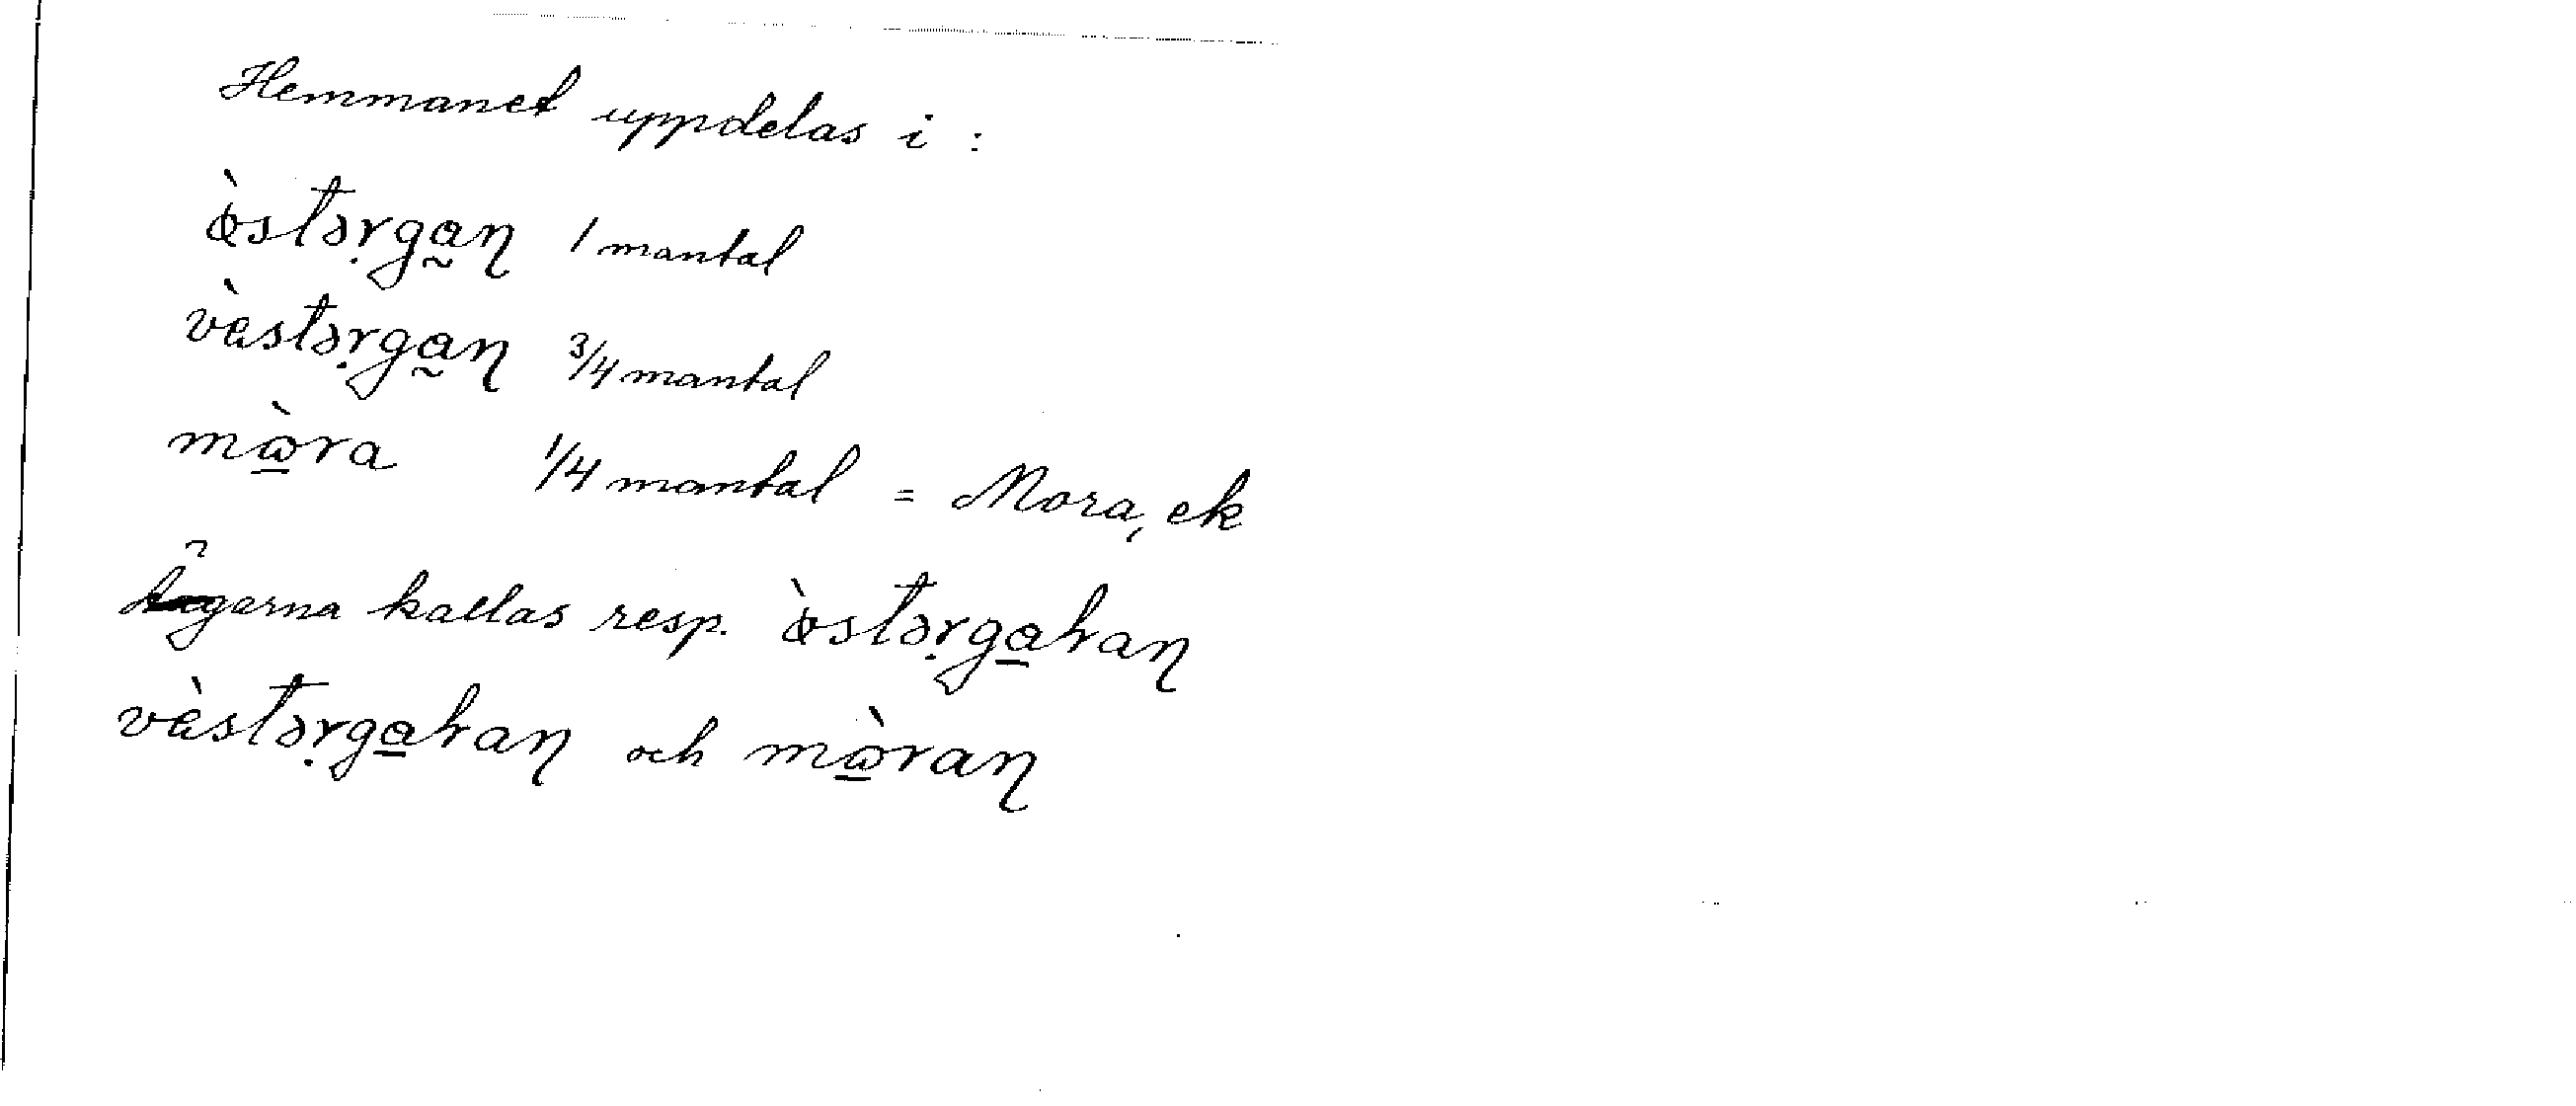 Hemmanet uppdelas i :
ɵ̀stəṛga̰ɳ 1 mantal
vàstəṛga̰ɳ 3/4 mantal
mɷ̱̀ra 1/4 mantal = Mora, ek
Ägerna kallas resp. ɵ̀stəṛga̱ɽaɳ
vàstəṛga̱ɽaɳ och mɷ̱̀raɳ